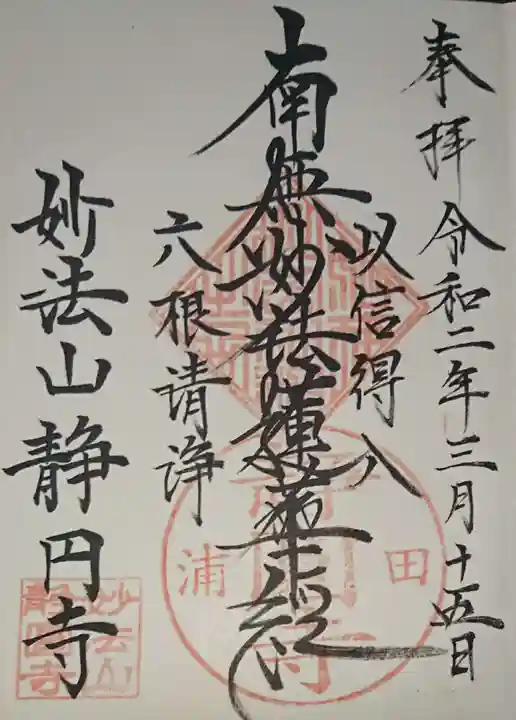 奉拝 令和二年三月十五日
以信得入
南無妙法蓮華経
六根請浄
妙法山静円寺
田浦
静圓寺
妙法山
静圓寺